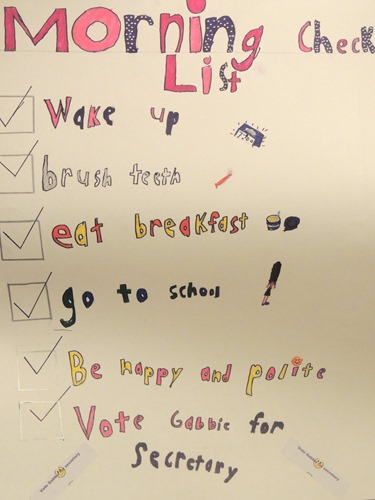 Morning Check
List
Wake up
brush teeth
eat breakfast
go to school
Be happy and polite
Vote Gabbie for
Secretary